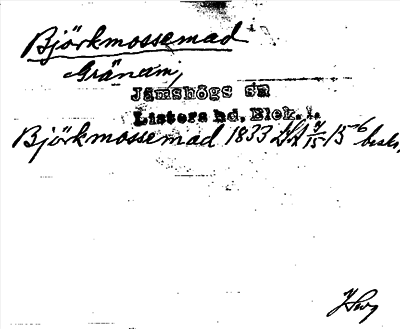 Björkmossemad
Gränum,
Jämshögs sn
Listers hd, Blek. l.
Björkmossemad 1833 LSA J/15-15⁻⁶ beskr.